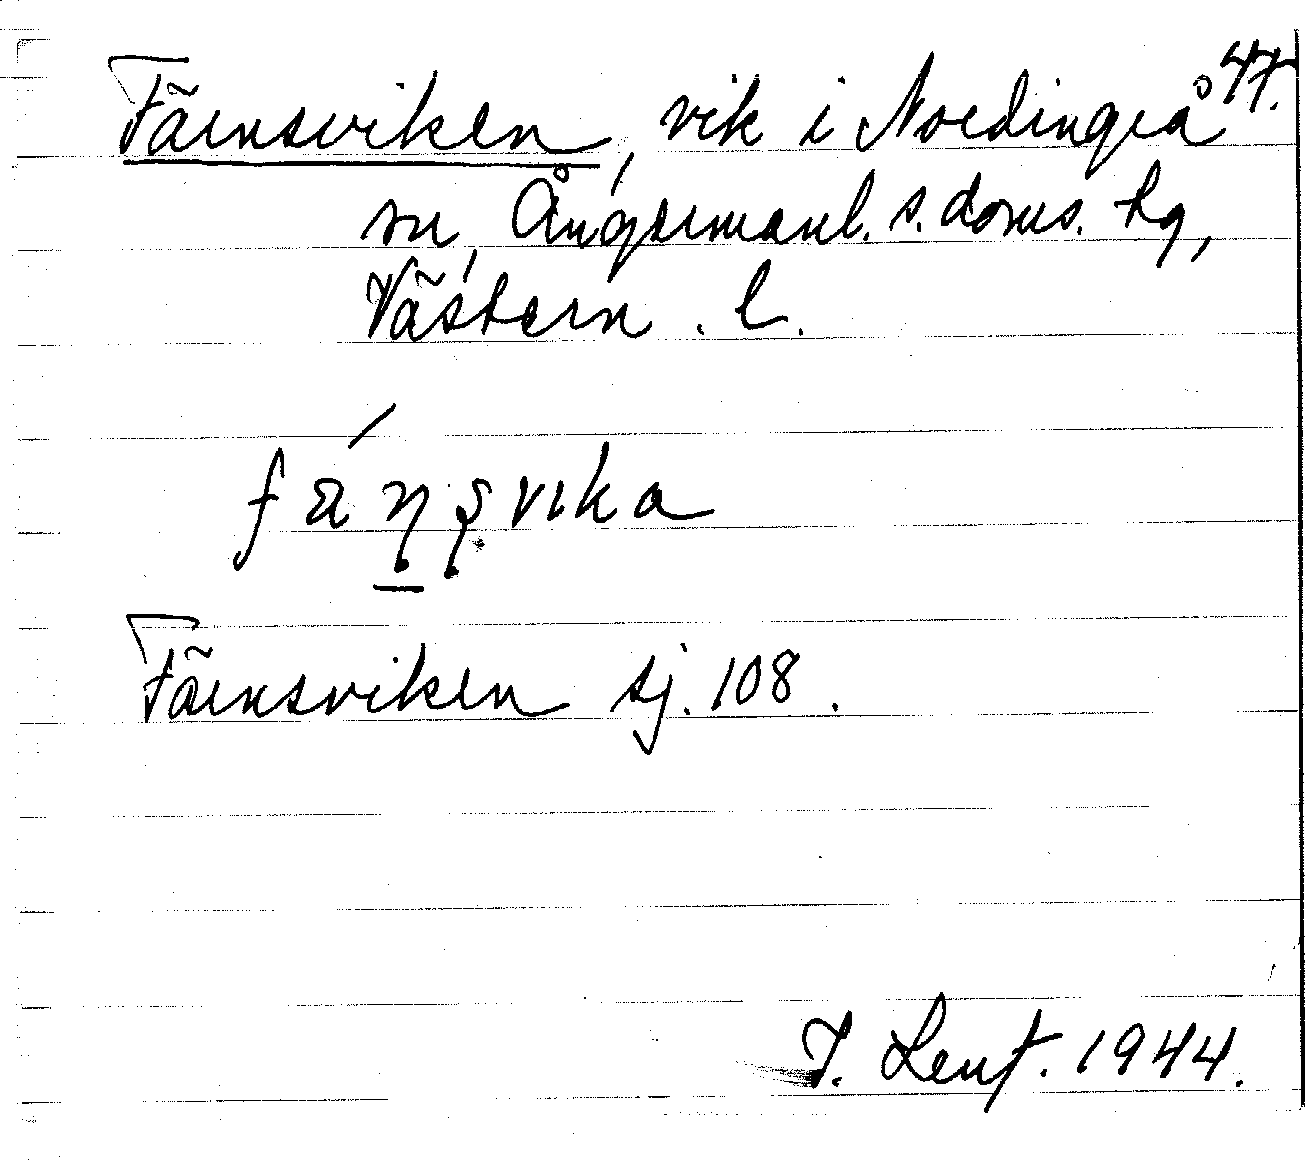 Färnsviken, vik i Nordingrå 47.
sn, Ångermanl. s. doms. tg,
Västern. l.
fä́ṇṣvika
Färnsviken sj. 108.
1944.